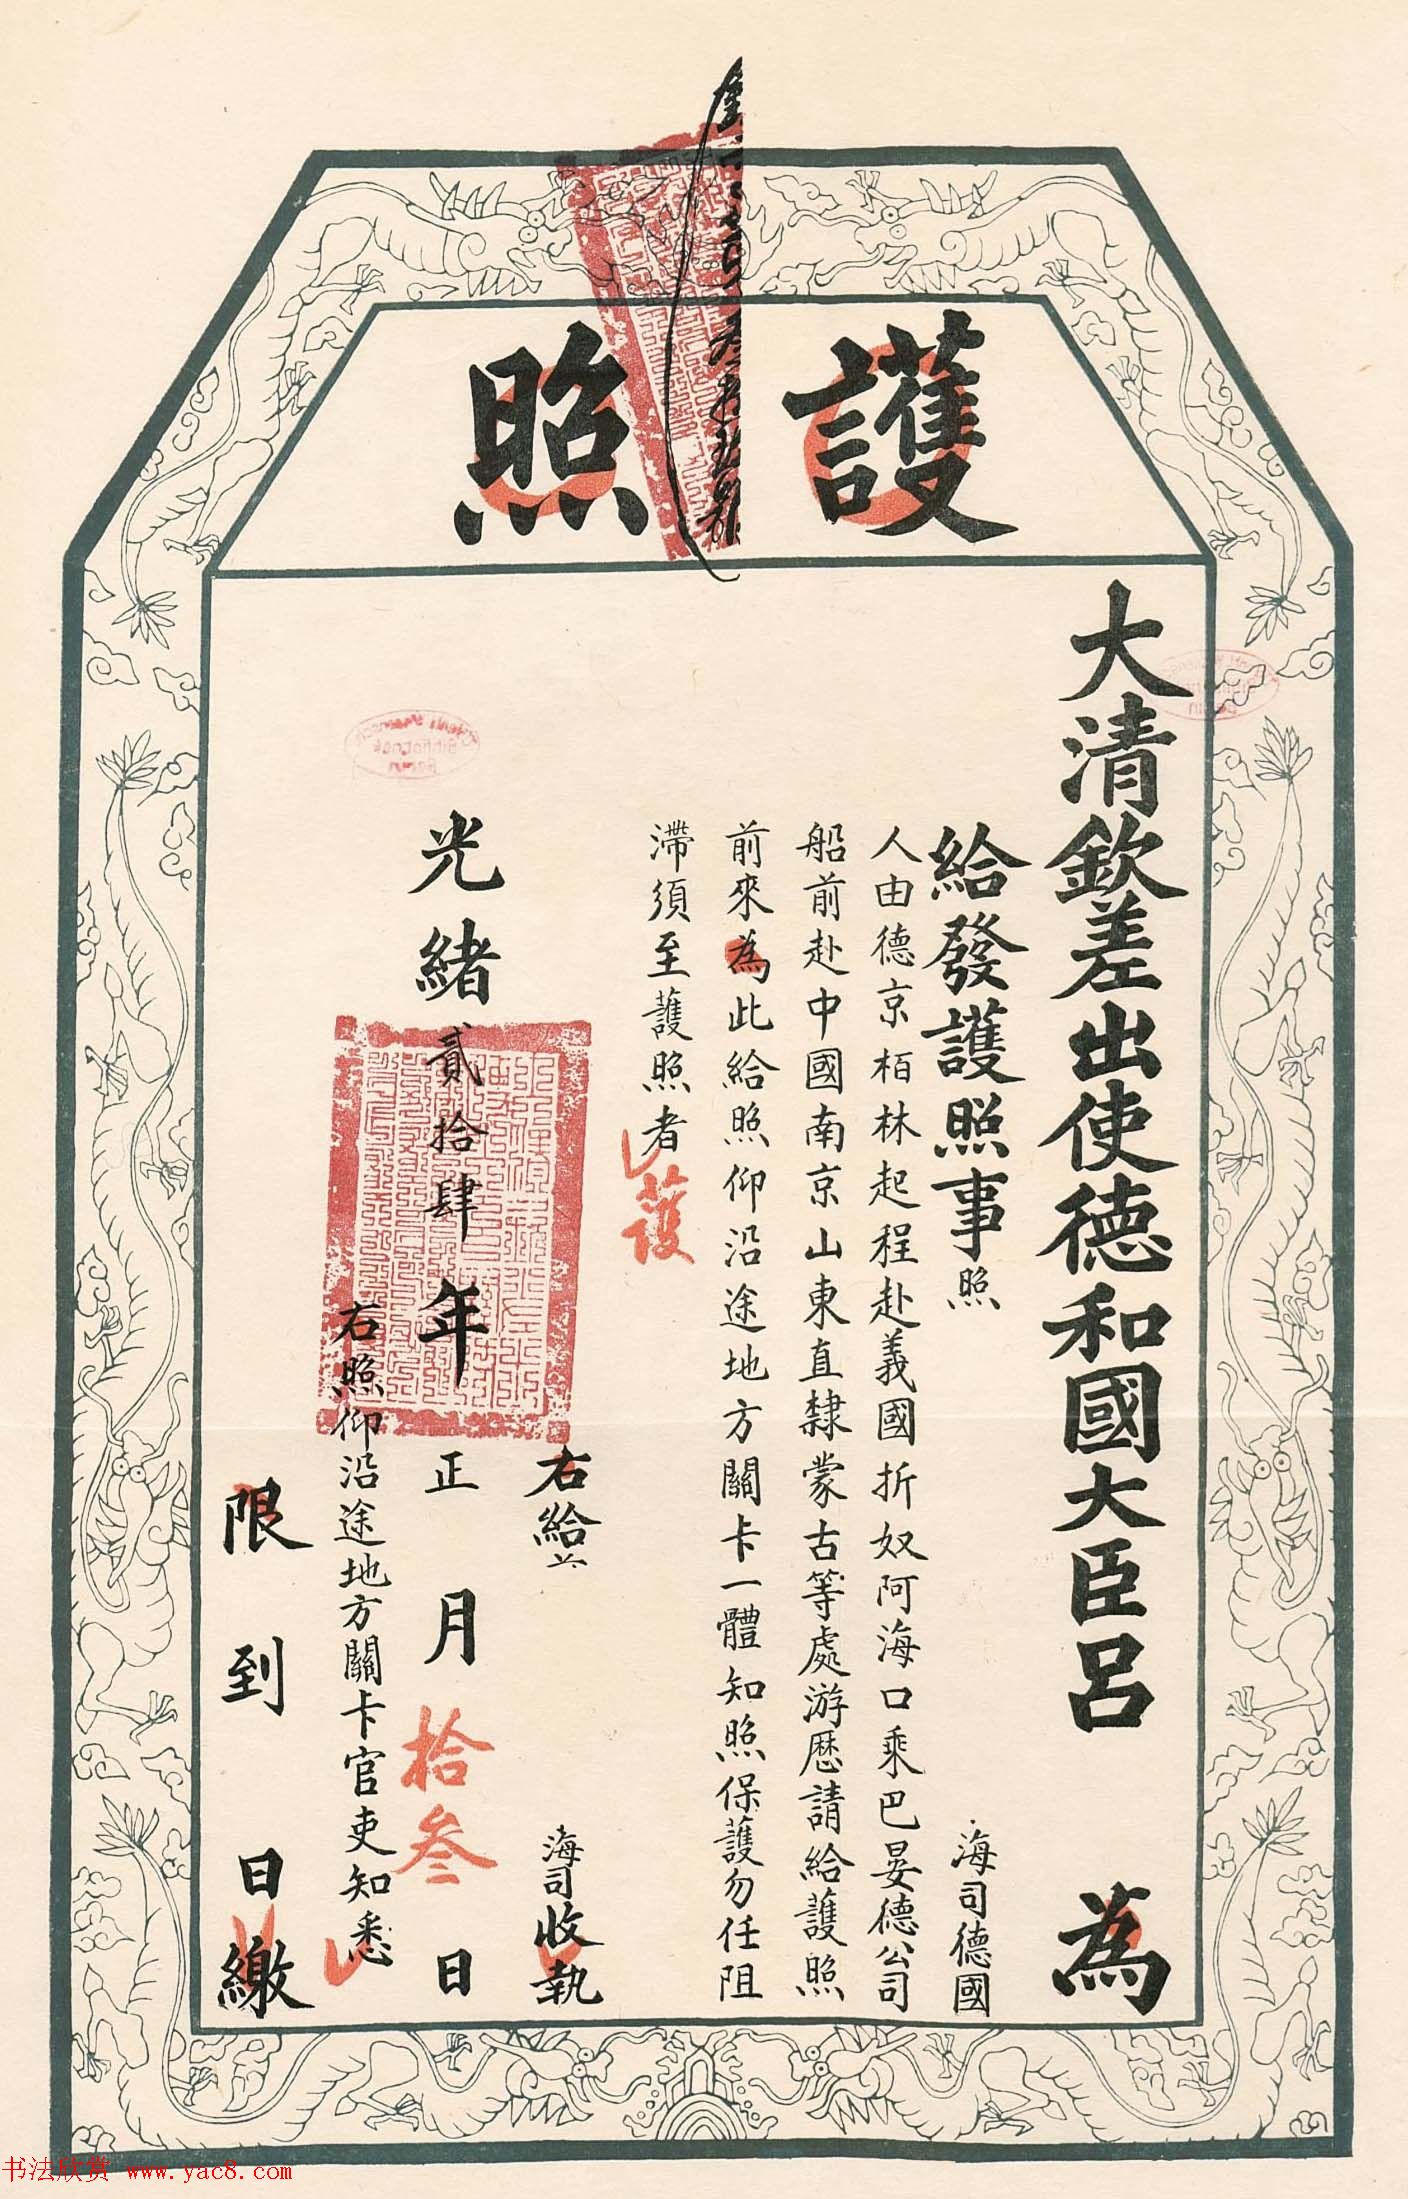 護照
大清欽差出使德和國大臣呂 為
給發護照事照 海司德國
人由德京栢林起程赴義國折奴阿海口乘巴晏德公司
船前赴中國南京山東直隸蒙古等處游歷請給護照
前來為此給照仰沿途地方關卡一體知照保護勿任阻
滯須至護照者
護
右給 海司收執
光緒貳拾肆年正月拾叁日
右照仰沿途地方關卡官吏知悉
限到日繳
书法欣赏 www.yac8.com